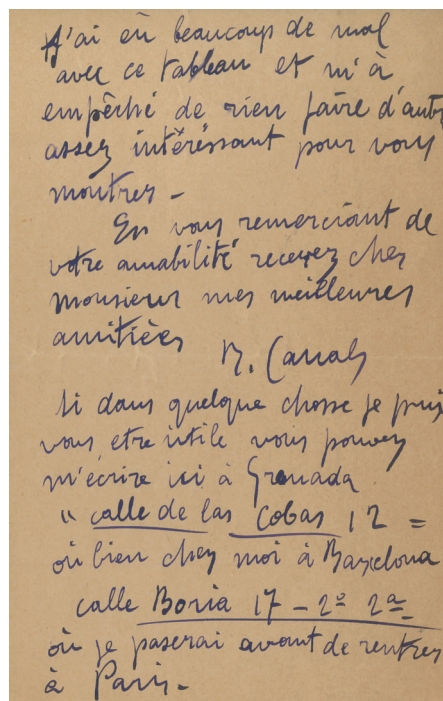 J'ai eù beaucoup de mal
avec ce tableau et m'à
empêché de rien faire d'autre
assez intéréssant pour vous
montrer -
En vous remerciant de
votre amabilité recevez cher
monsieur mes meilleures
amitiées
R. Canals
Si dans quelque chosse je puis
vous etre ùtile vous pouvez
m'écrire ici à Grenada
" calle de las Cobas 12 =
où bien chez moi à Barzelona
calle Boria 17 - 2º 2ª
où je paserai avant de rentrer
à Paris -